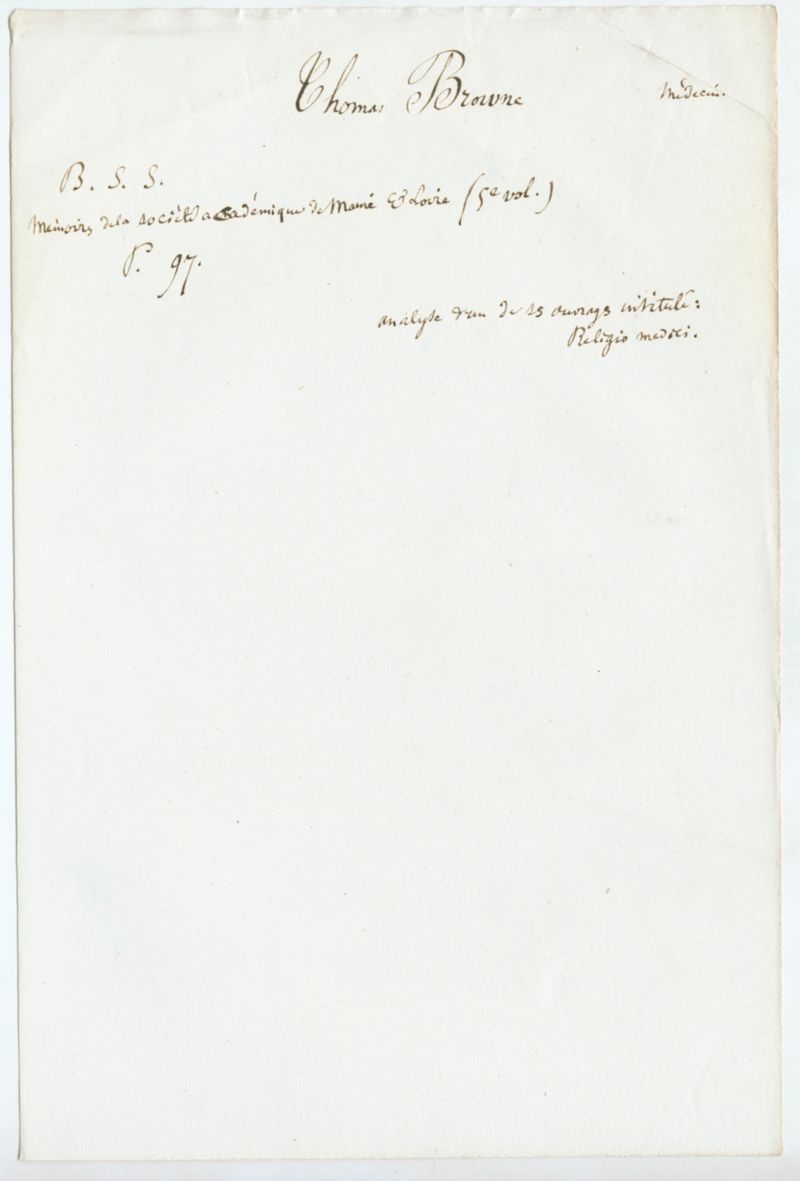 Thomas Browne
Médecin.
B. S. S.
Mémoires de la société académique de Maine & Loire (5e vol.)
P. 97.
analyse d'un de ses ouvrages intitulé:
Religio medici.